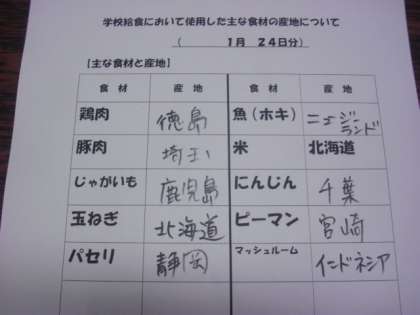 学校給食において使用した主な食材の産地について
( 1月 24日分)
【主な食材と産地】
食材 産地 食材 産地
鶏肉 徳島 魚(ホキ) ニュージーランド
豚肉 埼玉 米 北海道
じゃがいも 鹿児島 にんじん 千葉
玉ねぎ 北海道 ピーマン 宮崎
パセリ 静岡 マッシュルーム インドネシア